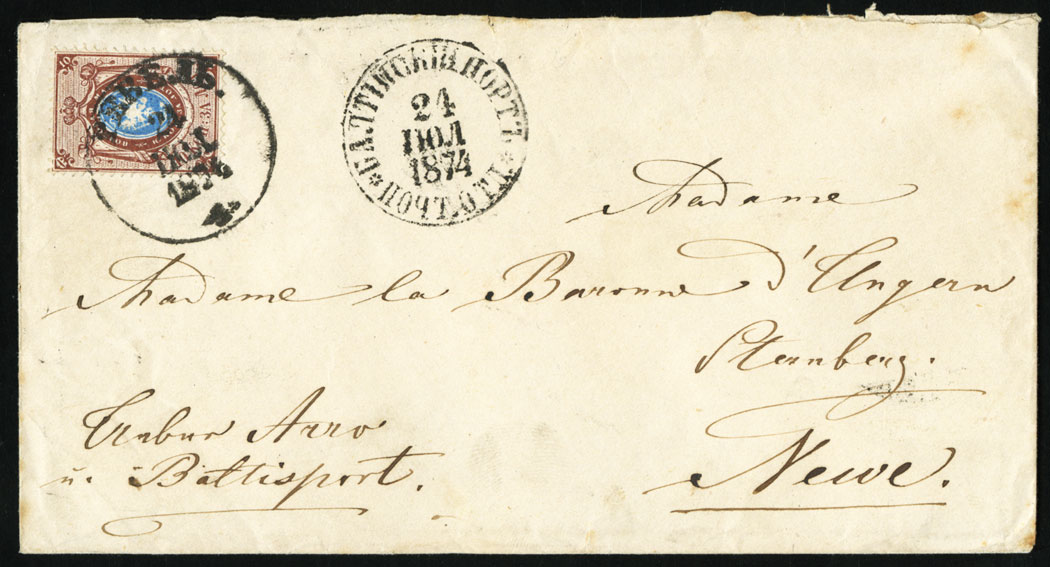 24
ІЮЛ
1874
БАЛТІЙСКІЙ ПОРТЪ
24
ІЮЛ
1874
ПОЧТ. ОТД.
Madame
Madame la Baronne d'Ungern
Sternberg.
Arro
u. Baltisport.
Newe.